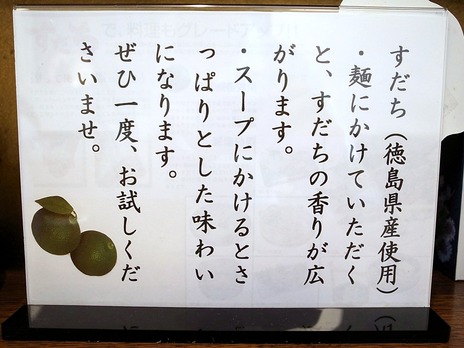 すだち（徳島県産使用）
・麺にかけていただく
と、すだちの香りが広
がります。
・スープにかけるとさ
っぱりとした味わい
になります。
ぜひ一度、お試しくだ
さいませ。